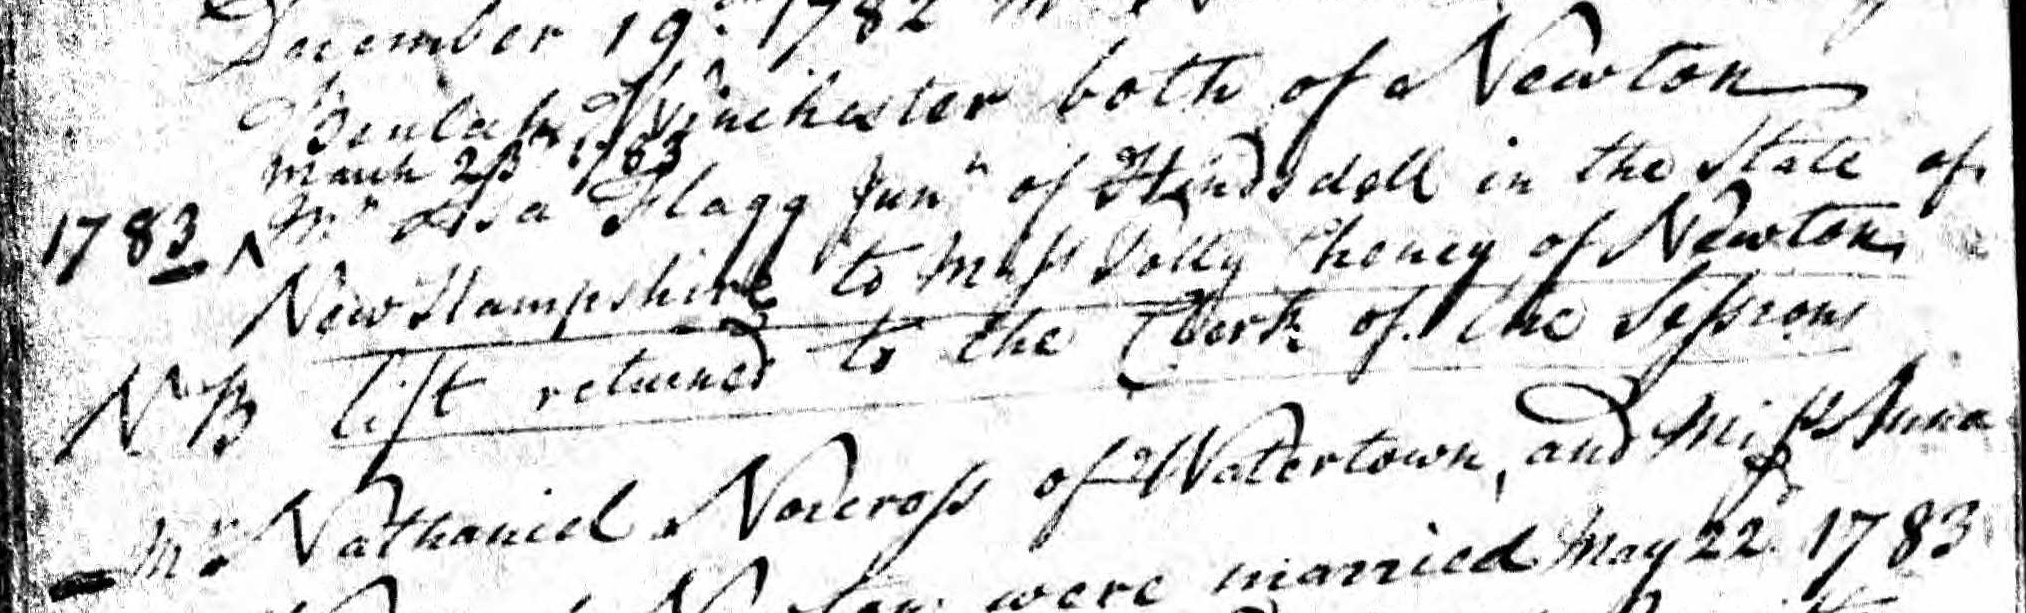 December 19th 1782 Mr
Beulah Winchester both of Newton
March 25th 1783
1783 ^ Mr Asa Flagg Junr of Hindsdell in the State of
New Hampshire to Miss Polly Cheney of Newton
N B List returned to the Clerk of the Sessions
Mr Nathaniel Norcross of Watertown, and Miss Anna
were married May 22d 1783